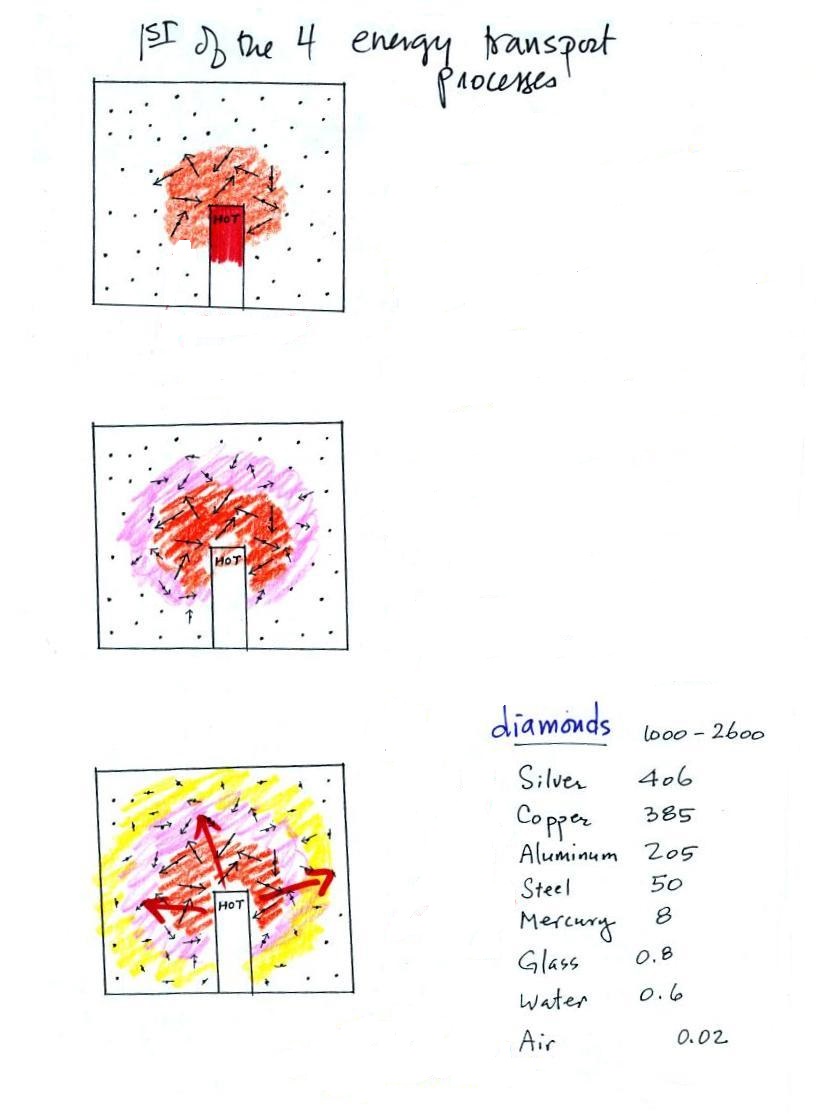 1ST of the 4 energy transport
processes
HOT
HOT
HOT
diamonds 1000 - 2600
Silver 406
Copper 385
Aluminum 205
Steel 50
Mercury 8
Glass 0.8
Water 0.6
Air 0.02